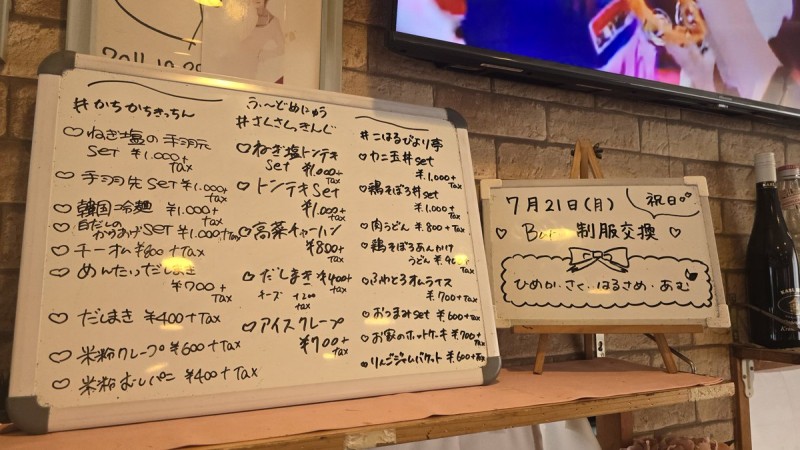 2011.10.29
#かちかちきっちん
♡ねぎ塩の手羽元
set ¥1.000+tax
♡手羽先set ¥1.000+tax
♡韓国冷麺 ¥1.000+tax
♡白だしの
からあげset ¥1.000+tax
♡チーオム¥800+tax
♡めんたいだしまき
¥700+tax
♡だしまき ¥400+tax
♡米粉クレープ¥600+tax
♡米粉むしパン ¥400+tax
ふ〜どめにゅう
#さくさくっきんぐ
♡ねぎ塩トンテキ
set ¥1.000+tax
♡トンテキset
¥1.000+tax
♡高菜チャーハン
¥800+tax
♡だしまき ¥400+tax
チーズ +200tax
♡アイスクレープ
¥700+tax
#こはるびより亭
♡カニ玉丼set
¥1.000+tax
♡鶏そぼろ丼set
¥1.000+tax
♡肉うどん ¥800+tax
♡鶏そぼろあんかけ
うどん
♡ふわとろオムライス
¥700+tax
♡おつまみset ¥600+tax
♡お家のホットケーキ¥700+tax
♡りんごジャムバケット ¥600+tax
7月21日(月) 祝日
♡ 制服交換 ♡
ひめか・さく・はるさめ・あむ